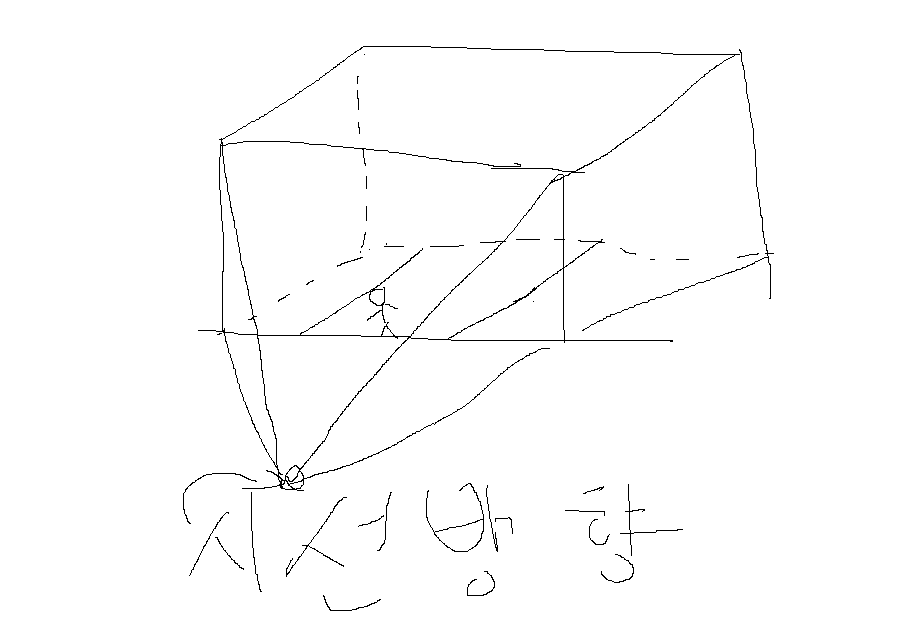 시선방향